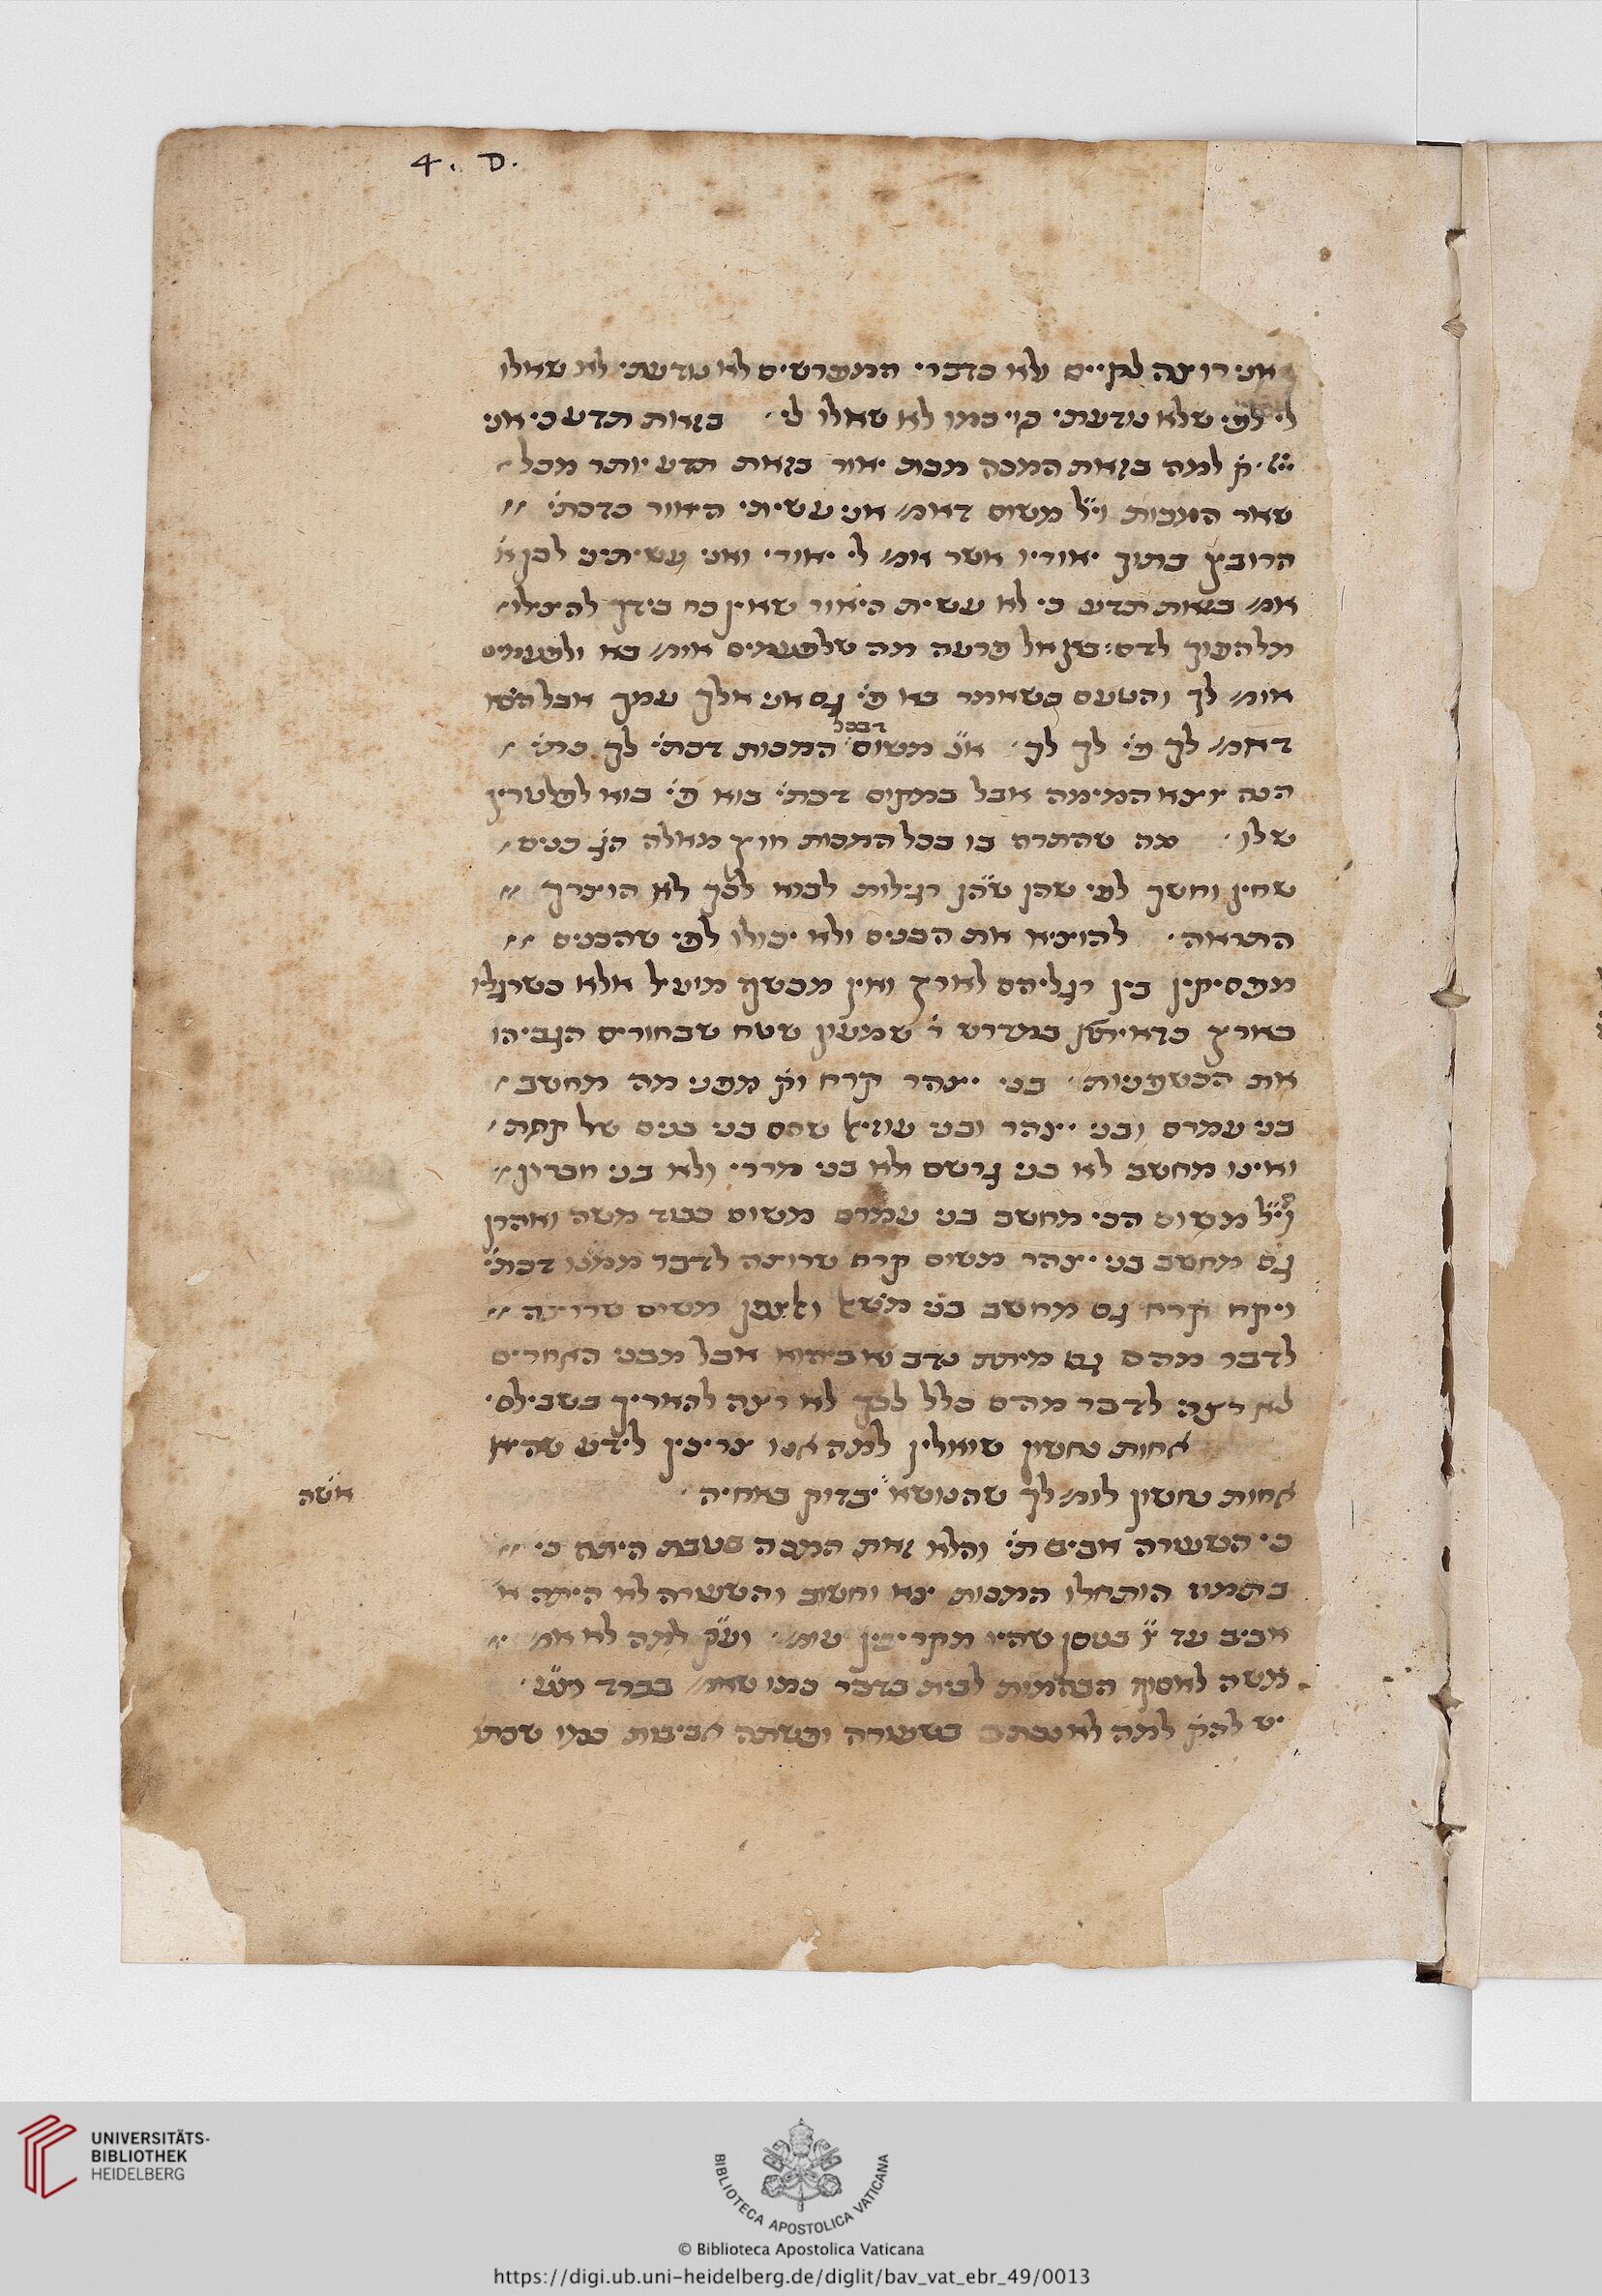 4. D.
אני רוצה לקיים ולא כדברי המפרשים לא נודעתי לא שאלו
לי לפי שלא נודעתי כי כמו לא שאלו לי בזאת תדע כי אני
ק' למה בזאת המכה מכת יאור בזאת תדע יותר מכל
שאר המכות וי"ל משום דאמ' אני עשיתי היאור כדכת'
הרובץ בתוך יאוריו אשר אמ' לי יאורי ואני עשיתיני לכך א'
אמ' בזאת תדע כי לא עשית היאור שאין כח בידך להצילו
מלהפוך לדם: בא אל פרעה מה שלפעמים אומ' בא ולפעמים
אומ' לך והטעם כשאומר בא פי' גם אני אלך עמך אבל השא
דאמ' לך פי' לך לך א"נ משום דבכל המכות דכת' לך כת'
הנה יוצא המימה אבל במקום דכת' בוא פי' בוא לפלטרין
שלו מה שהתרה בו בכל המכות חוץ מאלה הן כנים
שחין וחשך לפי שהן רגילות לבוא לכך לא הוצרך
התראה להוציא את הכנים ולא יכולו לפי שהכנים
מפסיקין בין רגליהם לארץ ואין מכשף מועיל אלא כשרגליו
בארץ כדאיתא במדרש ר' שמעון שטח שבחורים הגביהו
את הכשפניות בני יצהר קרח וק' מפני מה מחשב
בני עמרם ובני יצהר ובני עוזיאל שהם בני בנים של קהת
ואינו מחשב לא בני גרשם ולא בני מררי ולא בני חברון
וי"ל משום הכי מחשב בני עמרם משום כבוד משה ואהרן
גם מחשב בני יצהר משום קרח שרוצה לדבר ממנו דכת'
ויקח קרח גם מחשב בני מישאל ואלצפן משום שרוצה
לדבר מהם גם מיתת נדב ואביהוא אבל מבני האחרים
לא רצה לדבר מהם כלל לכך לא רצה להאריך בשבילם
אחות נחשון שואלין למה אנו צריכין לידע שהיא
אחות נחשון לומ' לך שהנושא יבדוק באחיה
אשה
כי השעורה אביב ת' והלא זאת המכה בטבת היתה כי
בתמוז הותחלו המכות צא וחשוב והשעורה לא היתה א
אביב עד בניסן שהיו מקריבין עומ' ועק' למה לא אמ'
משה לאסוף הבהמות לבית בדבר כמו שאמ' בברד
יש להק' למה לא נכתב בשעורה ופשתה אביבות כמו שכתו
UNIVERSITÄTS-
BIBLIOTHEK
HEIDELBERG
BIBLIOTECA APOSTOLICA VATICANA
© Biblioteca Apostolica Vaticana
https://digi.ub.uni-heidelberg.de/diglit/bav_vat_ebr_49/0013